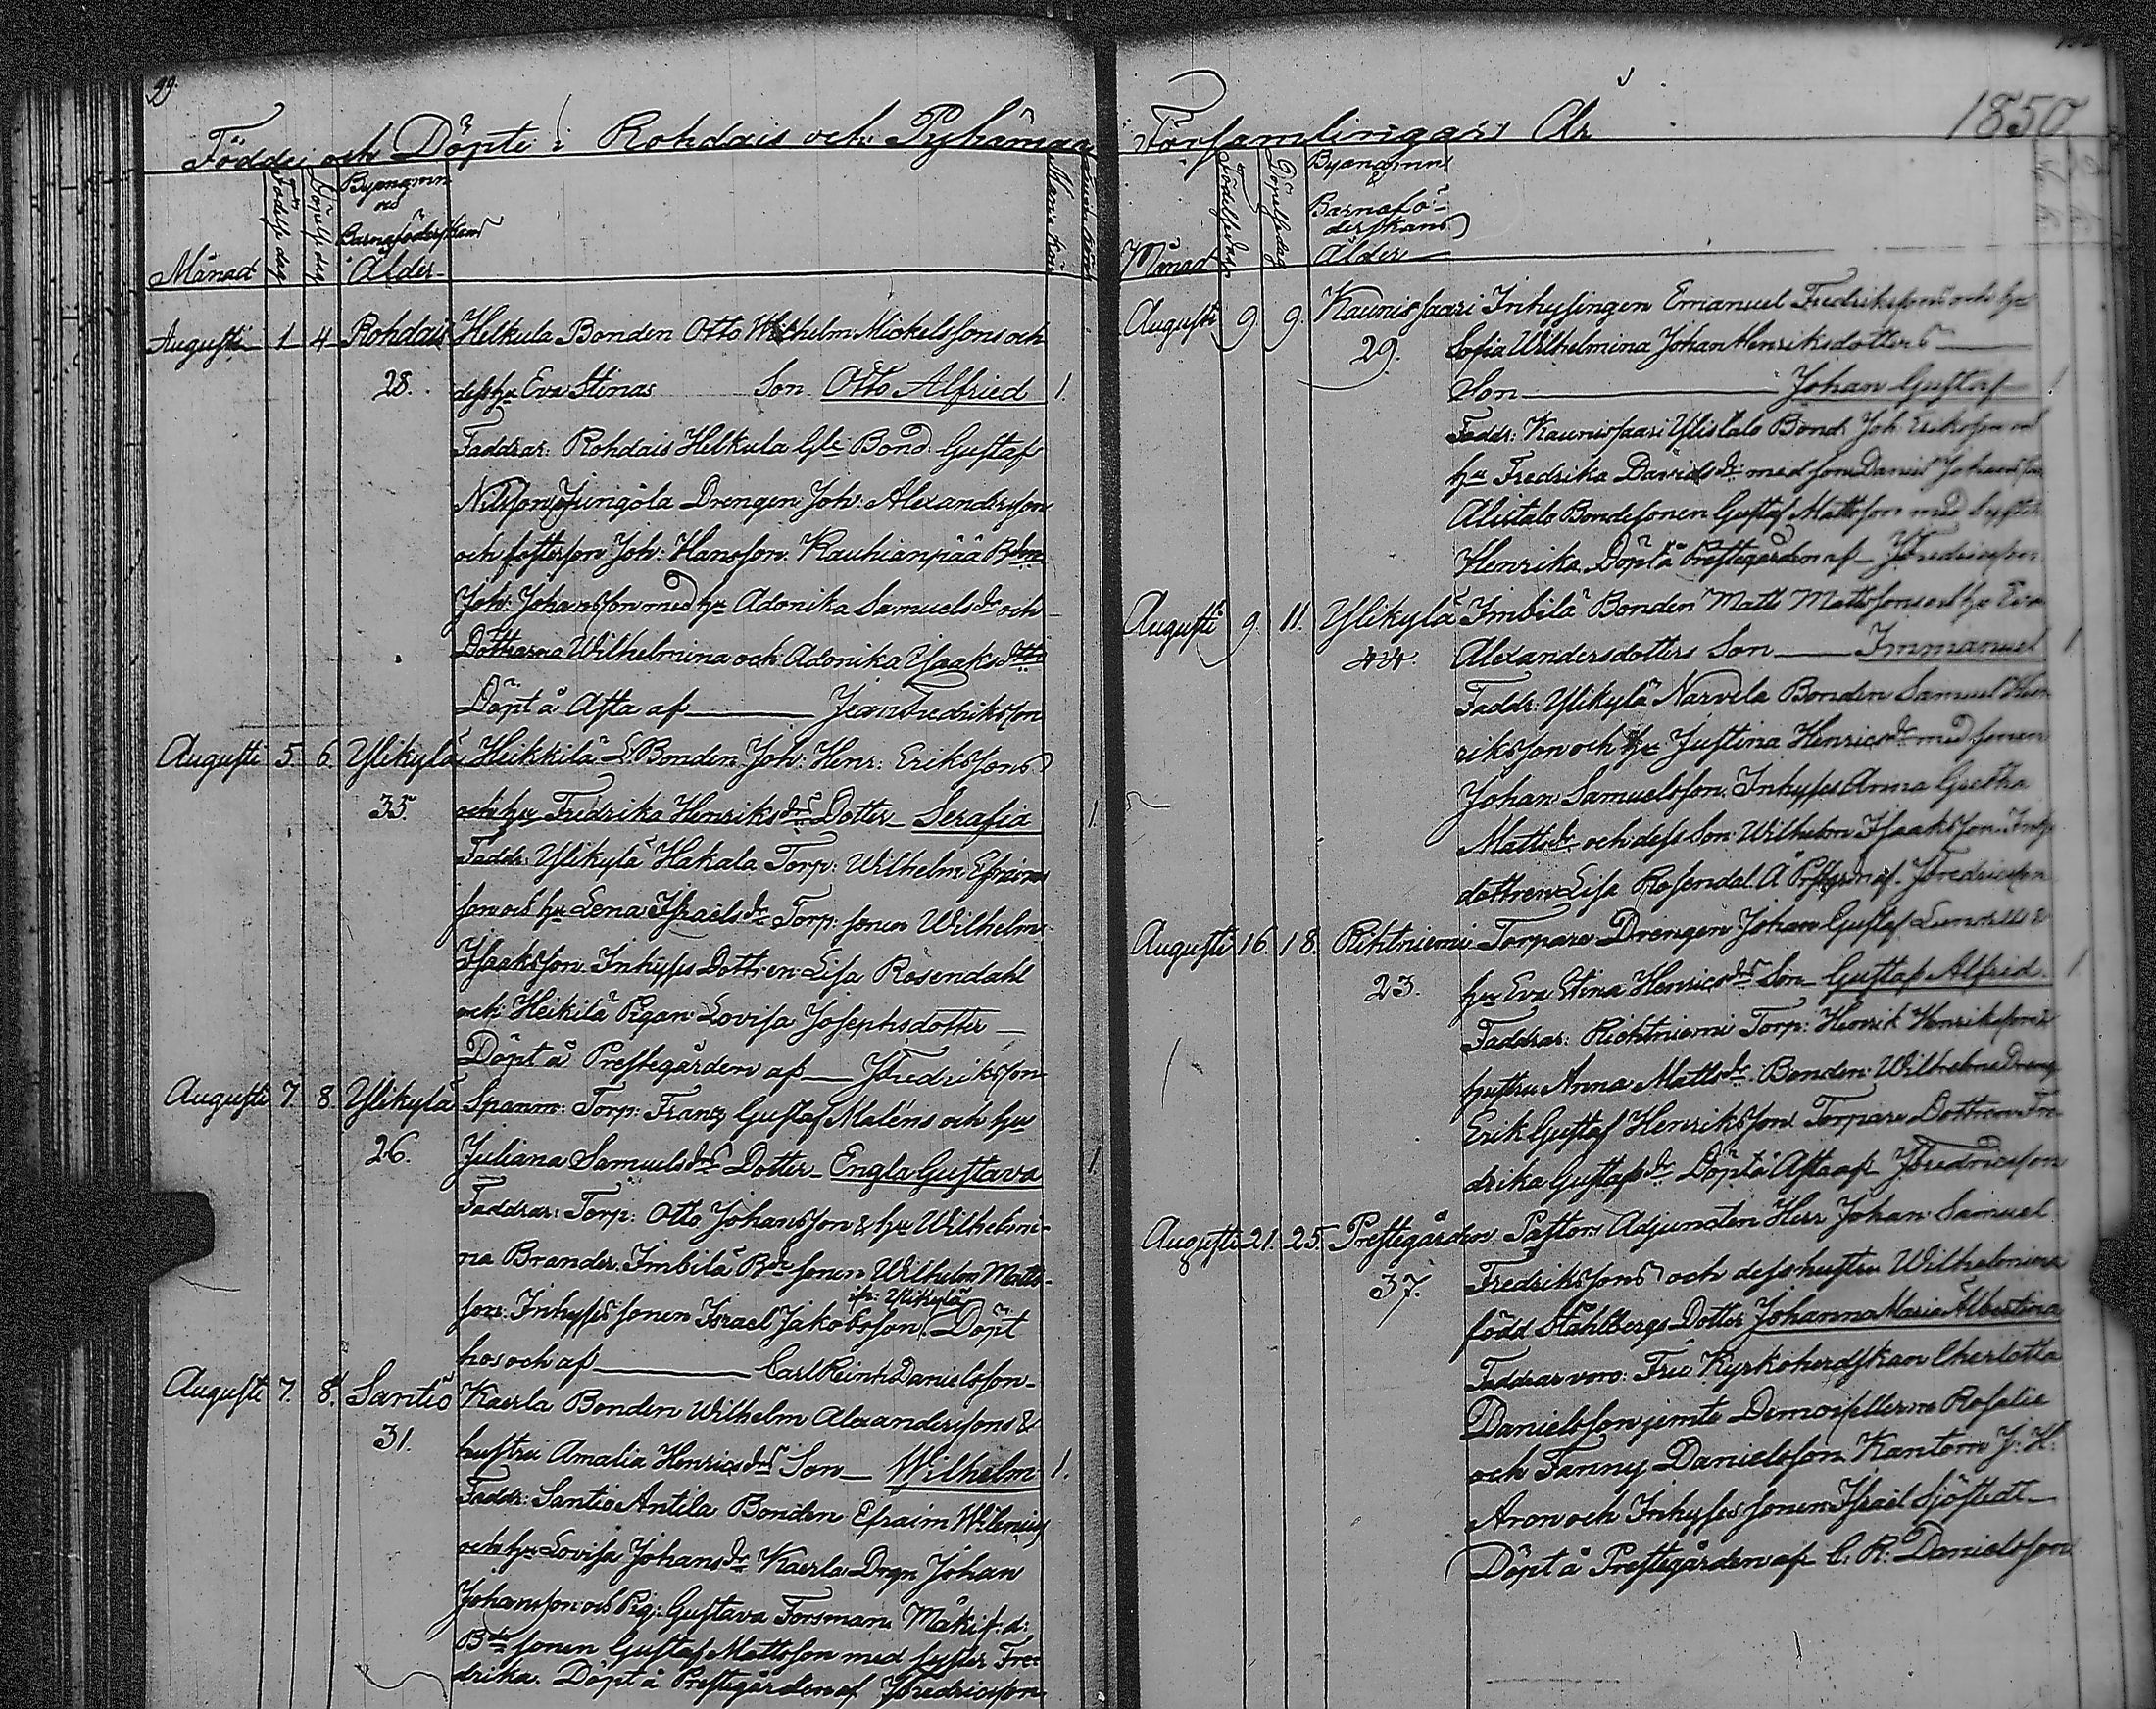 99.
Födde och Döpte i Rohdais och Pyhämaa
Månad
Födelse dag
Döpelse dag
Byanamn
och
Barnaföderskans
Ålder
Manna Kön
Qvinno Kön
Augusti 1 4 Rohdais Helkula Bonden Otto Wilhelm Mickelssons och
28. dess hu Eva Stinas Son Otto Alfried 1.
Faddrar: Rohdais Helkula Gle Bond. Gustaf
Nilsson, Jungola Drengen Joh: Alexandersson
och fosterson Joh: Hansson. Kauhianpää Bdn
Joh: Johansson med hu Adonika Samuels dr och
Döttrarna Wilhelmina och Adonika Isaaks dttr
Döpt å Asta af Jean Fredriksson
Augusti 5. 6. Ylikylä Heikkilä Bonden Joh: Henr: Erikssons
35. och hu Fredrika Henriks drs Dotter Serafia 1.
Faddr: Ylikylä Hakala Torp: Wilhelm Efraims
son och hu Lena Israels dr Torp: sonen Wilhelm
Isaaksson. Inhyses Dottren Lisa Rosendahl
och Heikilä Pigan Lovisa Josephsdotter
Döpt å Prestegården af JFredriksson
Augusti 7. 8. Ylikylä Spanm: Torp: Franz Gustaf Maléns och hu
26. Juliana Samuels drs Dotter Engla Gustava 1
Faddrar: Torp: Otto Johansson & hu Wilhelmi-
na Brander. Imbilä Bde sonen Wilhelm Matts-
son. Inhyses sonen Israel Jakobsson fr: Ylikylä. Döpt
hos och af Carl Reinh Danielsson
Augusti 7. 8. Santio Kaerla Bonden Wilhelm Alexanderssons &
31. hustru Amalia Henrics drs Son Wilhelm 1.
Faddr: Santio Antila Bonden Efraim Wilenius
och hu Lovisa Johans dr Kaerla Drgn Johan
Johansson och Pig: Gustava Forsman. Mäki f.d.
Bde sonen Gustaf Mattsson med syster Fre-
drika. Döpt å Prestegården af JFredricsson
Församlingar År 1850
Månad
Födelsedag
Döpelsedag
Byanamn
&
Barnafö-
derskans
Ålder
Augusti 9 9. Kaunissaari Inhysingen Emanuel Fredrikssons och hu
29. Sofia Wilhelmina Johan Henriksdotters
Son Johan Gustaf 1
Faddr: Kaunissaari Ylistalo Bond. Joh: Eriksson och
hu Fredrika Davids dr med son Daniel Johansson
Alistalo Bondesonen Gustaf Mattsson med Syster
Henrika. Döpt å Prestegården af JFredricsson
Augusti 9. 11. Ylikylä Imbilä Bonden Matts Mattssons och hu Eva
44. Alexandersdotters Son Immanuel 1
Faddr: Ylikylä Narvela Bonden Samuel Hen
riksson och hu Justina Henrics dr med sonen
Johan Samuelsson. Inhyses Anna Gretha
Matts dr och dess Son Wilhelm Isaaksson. Inhy
dottren Lisa Rosendal. Å Prstgrdn af JFredricsson
Augusti 16. 18. Rihtniemi Torpare Drengen Johan Gustaf &
23. hu Eva Stina Henrics drs Son Gustaf Alfred 1
Faddrar: Richtniemi Torp: Henrik Henriksson &
hustru Anna Matts dr. Bonden Wilhelms Dreng
Erik Gustaf Henriksson Torpare Dottren Fre
drika Gustafs dr Döpt å Asta af JFredricsson
Augusti 21. 25. Prestegården Pastors Adjuncten Herr Johan Samuel
37. Fredrikssons och dess hustru Wilhelmina
född Ståhlbergs Dotter Johanna Maria Albertina
Faddrar voro: Fru Kyrkoherdskan Charlotta
Danielsson jemte Demoisellerne Rosalie
och Fanny Danielsson Kantorn J: H:
Aron och Inhyses sonen Israel Sjöstedt
Döpt å Prestegården af C. R. Danielsson